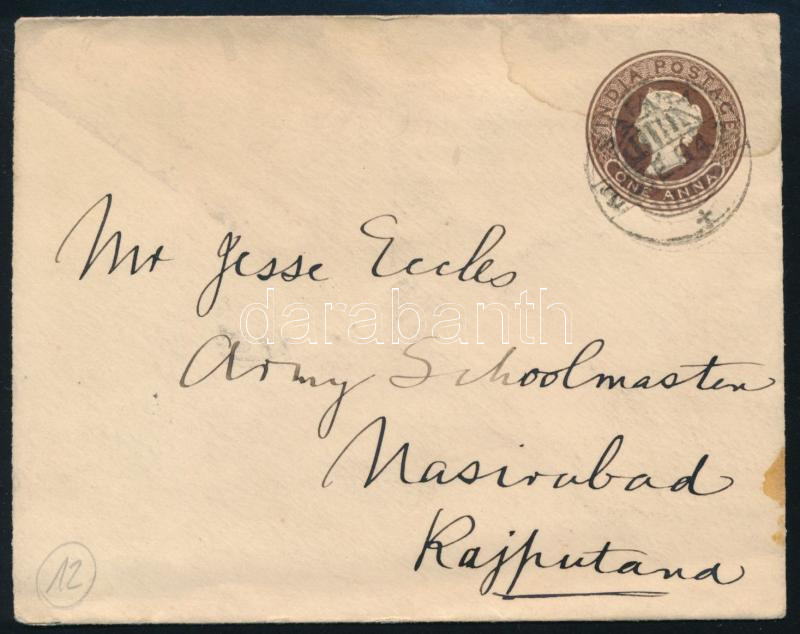 INDIA POSTAGE
ONE ANNA
Mr Jesse Eccles
darabanth
Army Schoolmaster
Nasirabad
Rajputana
12